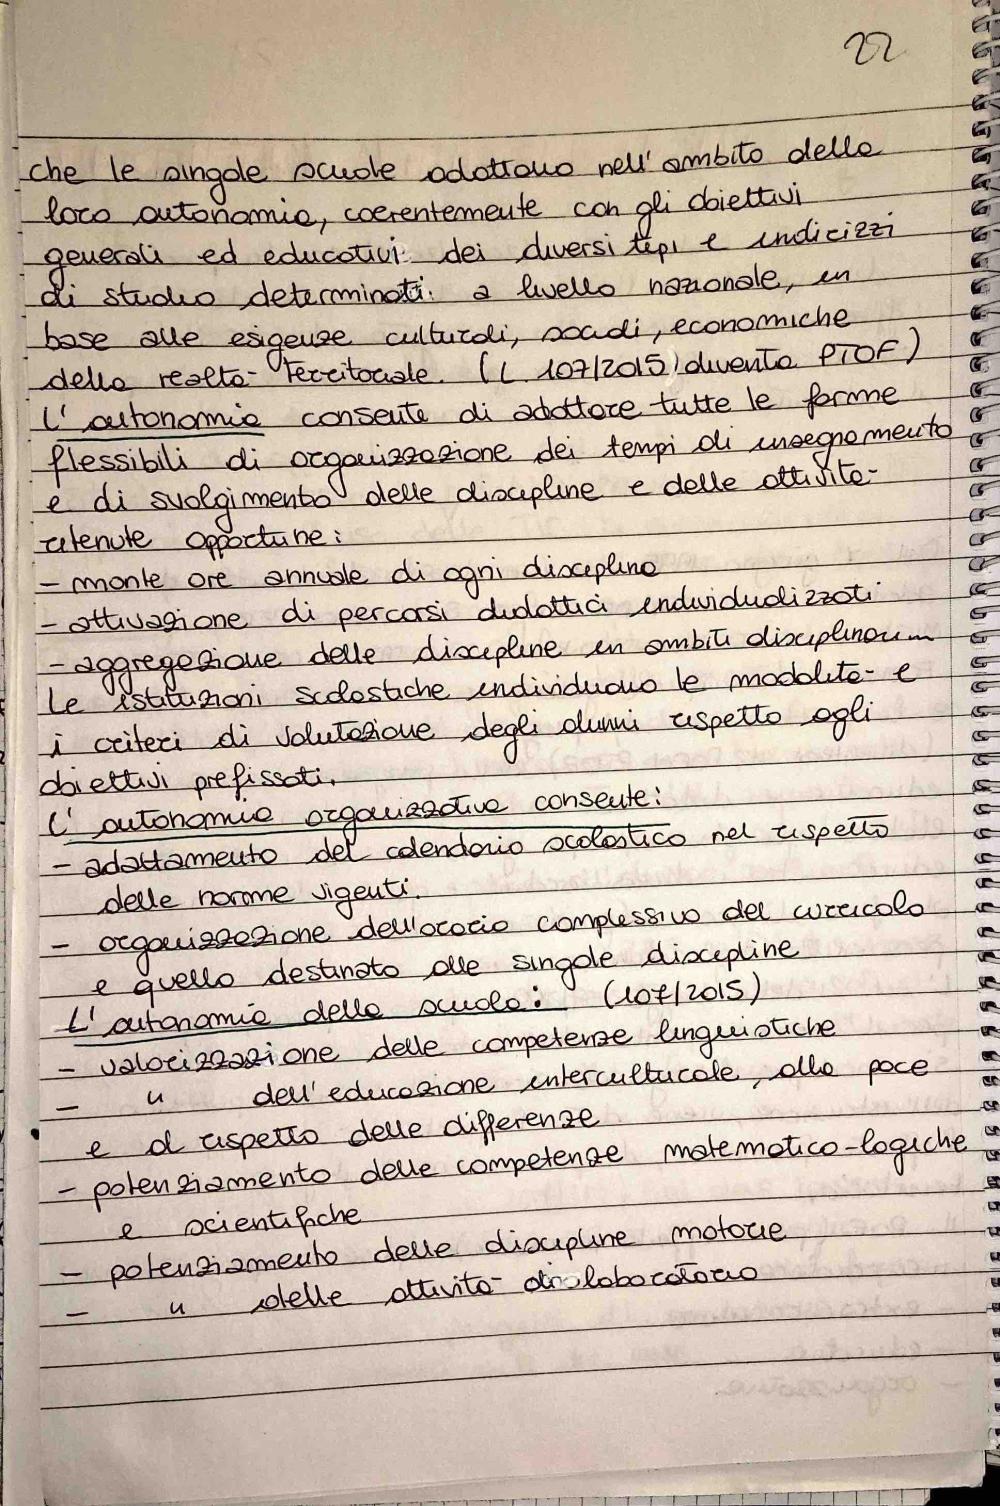 22
che le singole scuole adottano nell'ambito della
loro autonomia, coerentemente con gli obiettivi
generali ed educativi dei diversi tipi e indirizzi
di studio determinati a livello nazionale, in
base alle esigenze culturali, sociali, economiche
della realtà territoriale. (L. 107/2015) diventa PTOF)
L'autonomia consente di adottare tutte le forme
flessibili di organizzazione dei tempi di insegnamento
e di svolgimento delle discipline e delle attività
ritenute opportune:
- monte ore annuale di ogni disciplina
- attivazione di percorsi didattici individualizzati
- aggregazione delle discipline in ambiti disciplinari
Le istituzioni scolastiche individuano le modalità e
i criteri di valutazione degli alunni rispetto agli
obiettivi prefissati.
L'autonomia organizzativa consente:
- adattamento del calendario scolastico nel rispetto
delle norme vigenti.
- organizzazione dell'orario complessivo del curricolo
e quello destinato alle singole discipline
L'autonomia della scuola: (107/2015)
- valorizzazione delle competenze linguistiche
- " dell'educazione interculturale, alla pace
e al rispetto delle differenze
- potenziamento delle competenze matematico-logiche
e scientifiche
- potenziamento delle discipline motorie
- " delle attività di laboratorio